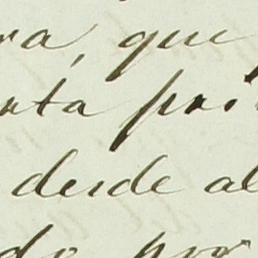 ra, que
nta pri
desde al
do por